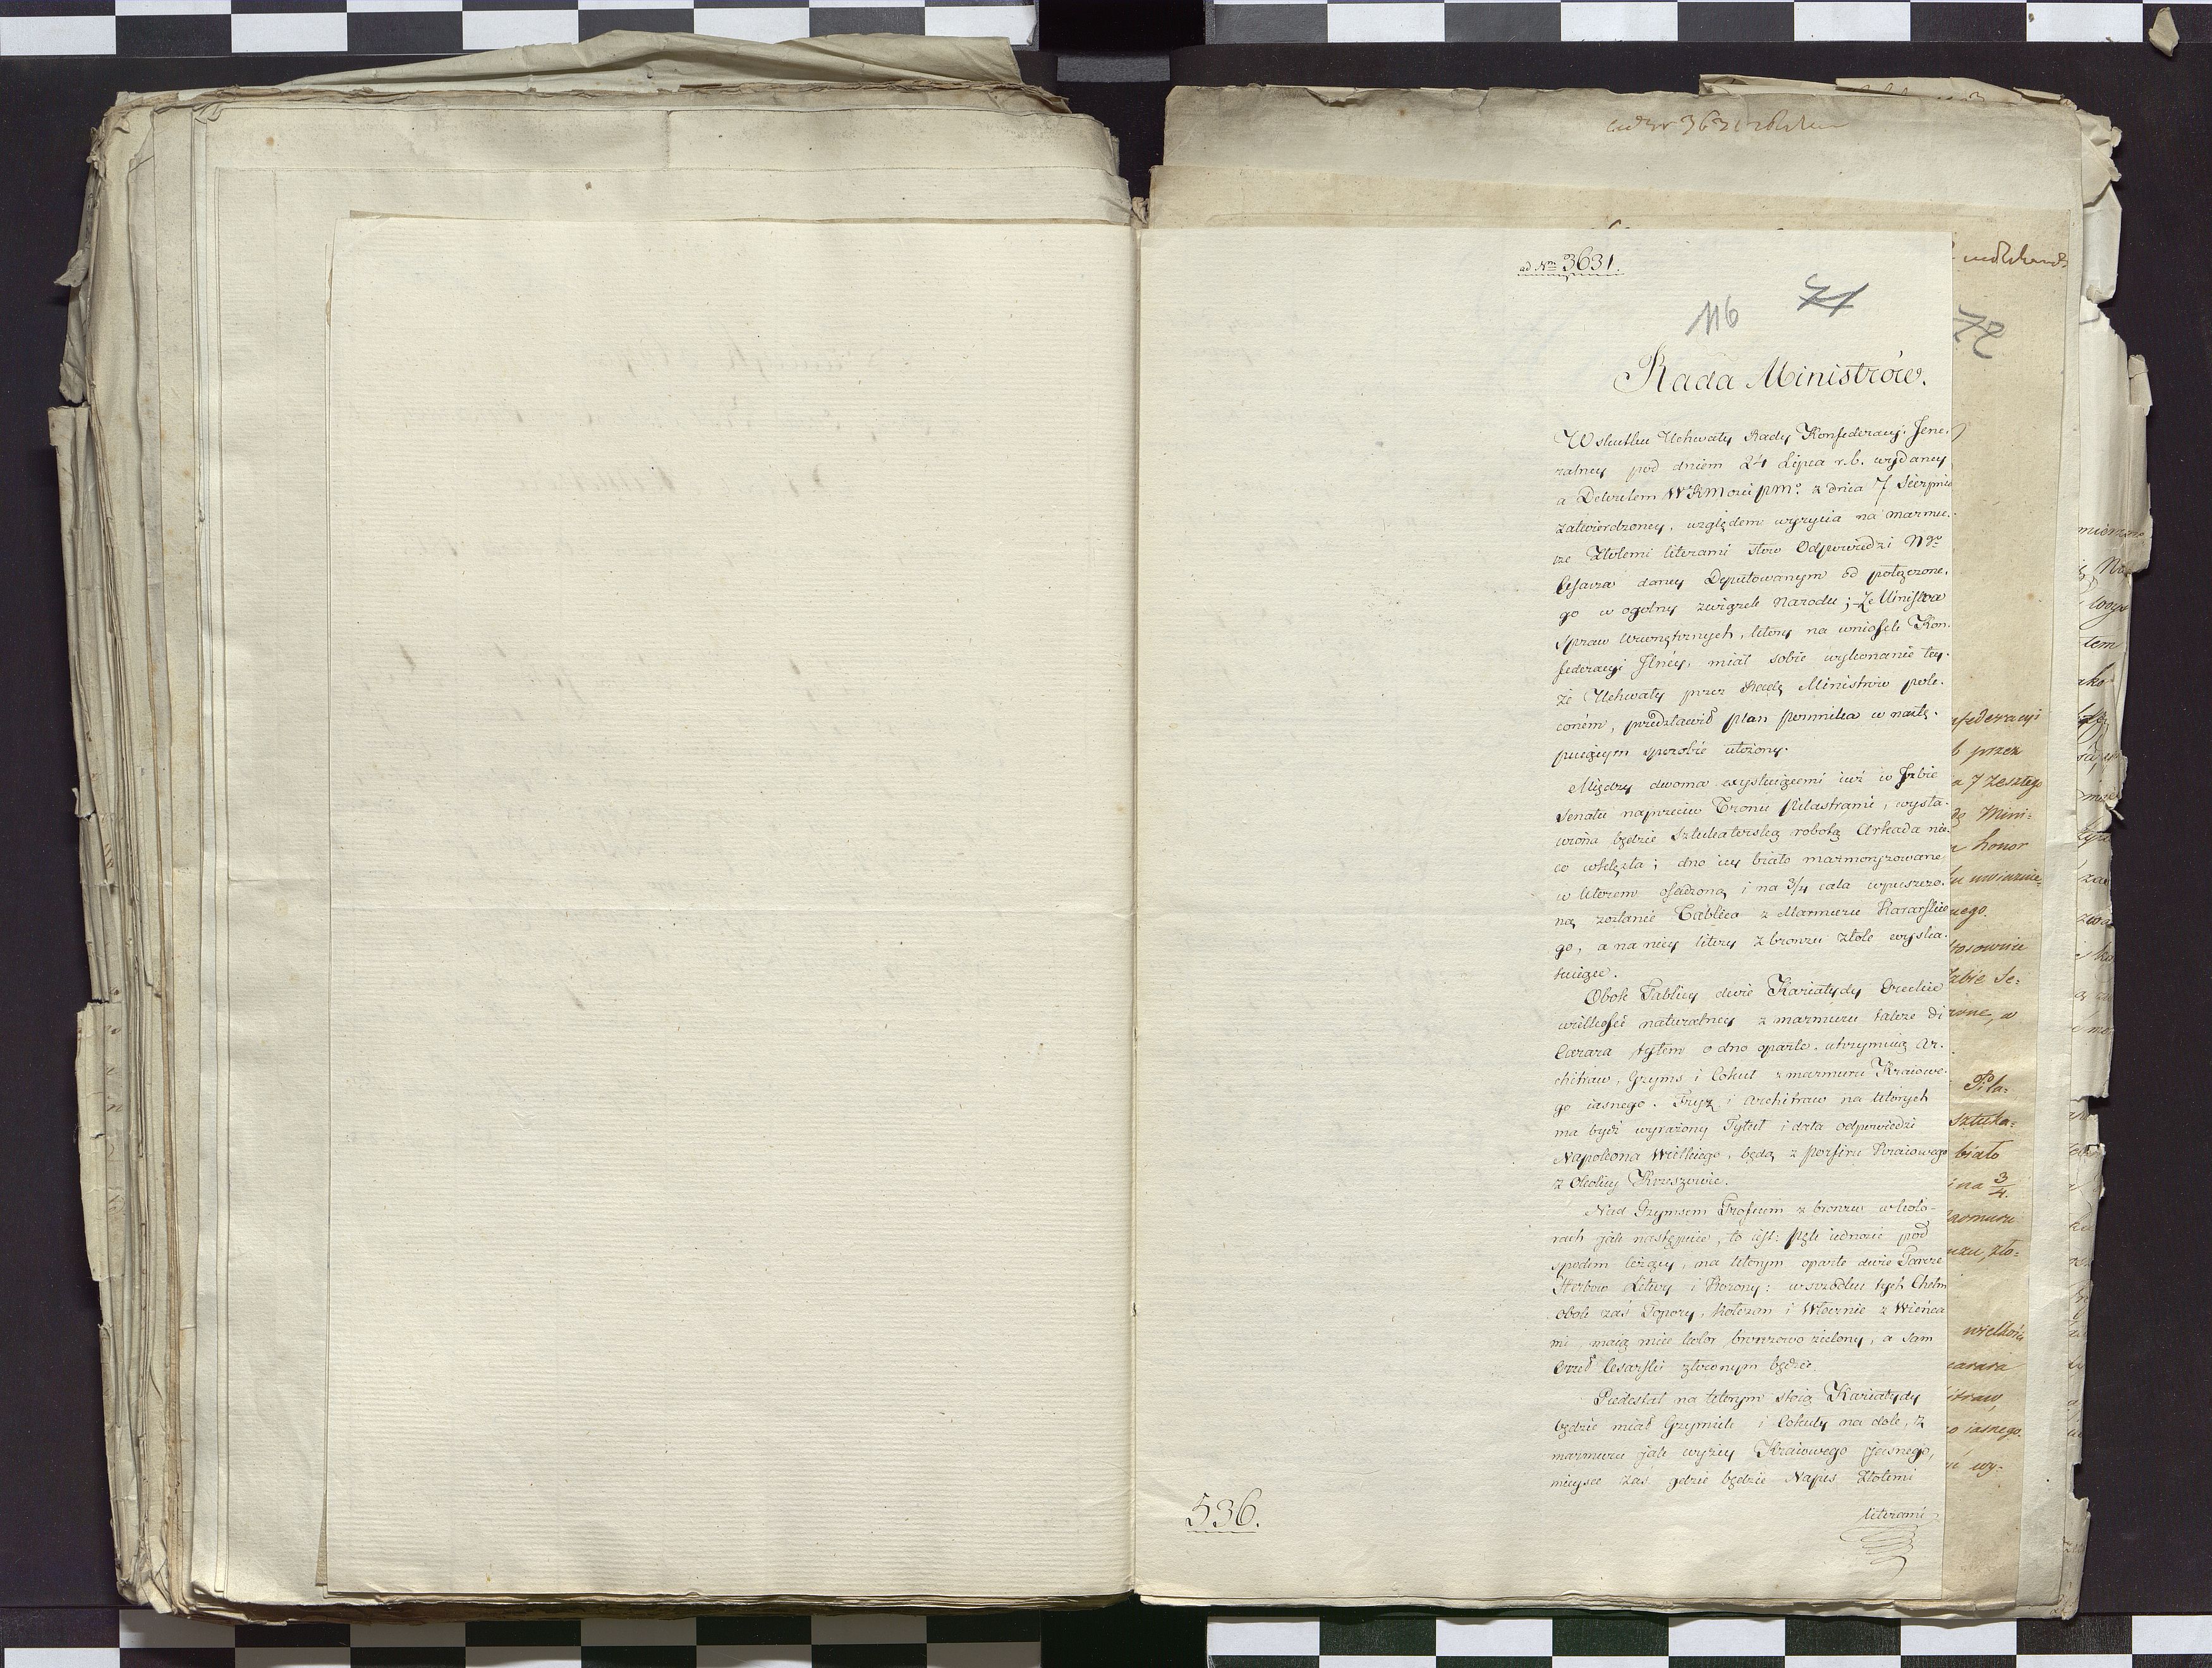 ad Nrm 3631.
116 71
72
Rada Ministrów.
W skutku Uchwały Rady Konfederacyi Jene-
ralney pod dniem 24 Lipca r.b. wydaney
a Dekretem WKMości pmo. z dnia 7 Sierpnia
zatwierdzoney, względem wyrycia na marmu-
rze Złotemi literami słów Odpowiedzi Ngo
Cesarza daney Deputowanym od połączone-
go w ogolny związek Narodu; Minister
Spraw Wewnętrznych, który na wniosek Kon-
federacyi Jlnéy, miał sobie wykonanie tey-
że Uchwały przez Radę Ministrów pole-
coném, przedstawił plan pomnika w nastę-
puiącym sposobie ułożony.
Między dwoma exystuiącemi iuż w Izbie
Senatu naprzeciw Tronu Pilastrami, wysta-
wiona będzie Sztukaterską robotą Arkada nie-
co wklęsła; dno iey biało marmoryzowane
w którem osadzoną i na 3/4 cala wpuszczo-
ną zostanie Tablica z Marmuru Kararskie-
go, a na niey litery z bronzu złote wyska-
kuiące.
Obok Tablicy dwie Kariatydy Greckie
wielkości naturalney z marmuru także di
Carara tyłem o dno oparte utrzymuią Ar-
chitraw, Gzyms i Cokuł z marmuru Kraiowe-
go iasnego. Fryz i Architraw na których
ma bydź wyrażony Tytuł i data odpowiedzi
Napoleona Wielkiego, będą z porfiru Kraiowego
z Okolicy Krzeszowic.
Nad Gzymsem Trofeum z bronzu w kolo-
rach jak następuie, to iest: pęk
spodem leżący, na którym oparte dwie Tarcze
Herbów Litwy i Korony: w srzodku tych Chełm
obok zaś Topory, Kołczan i Włócznie z Wieńca-
mi maią mieć kolor bronzowo zielony, a sam
Orzeł Cesarski złoconym będzie.
Piedestał na którym stoią Kariatydy
będzie miał Gzymsik i Cokuły na dole, z
marmuru jak wyżey Kraiowego jasnego,
mieysce zaś gdzie będzie Napis Złotemi
literami
536.